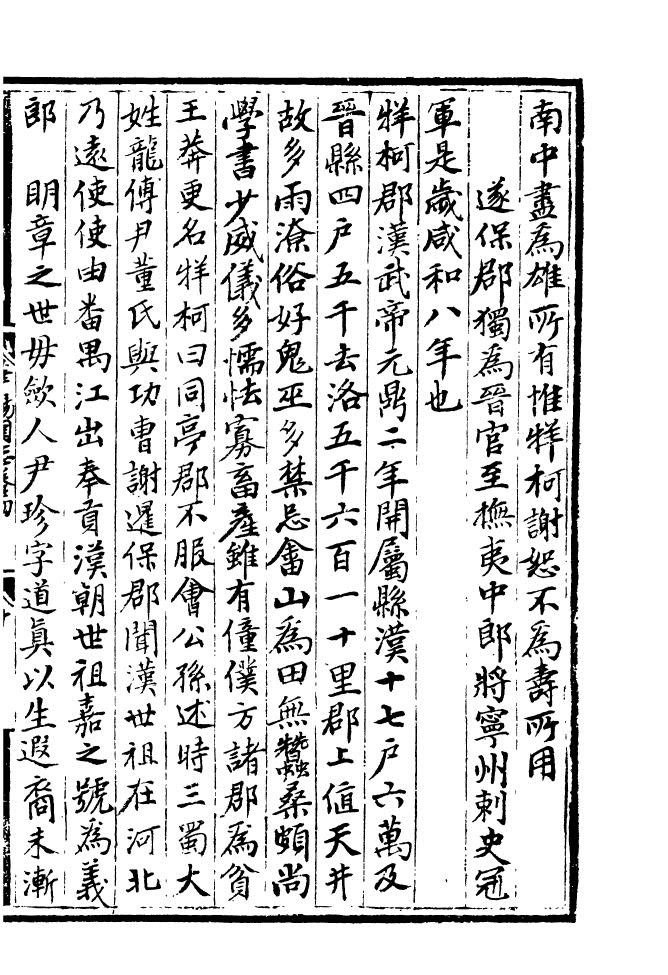 南中盡爲雄所有惟牂柯謝恕不爲壽所用
遂保郡獨爲晉官至撫夷中郎將寧州刺史冠
軍是歲咸和八年也
牂柯郡漢武帝元鼎二年開屬縣漢十七戶六萬及
晉縣四戶五千去洛五千六百一十里郡上值天井
故多雨潦俗好鬼巫多禁忌畬山爲田無蠶桑頗尚
學書少威儀多懦怯寡畜產雖有僮僕方諸郡爲貧
王莽更名牂柯曰同亭郡不服會公孫述時三蜀大
姓龍傅尹董氏與功曹謝暹保郡聞漢世祖在河北
乃遠使使由番禺江出奉貢漢朝世祖嘉之號爲義
郎　明章之世毋斂人尹珍字道眞以生遐裔未漸